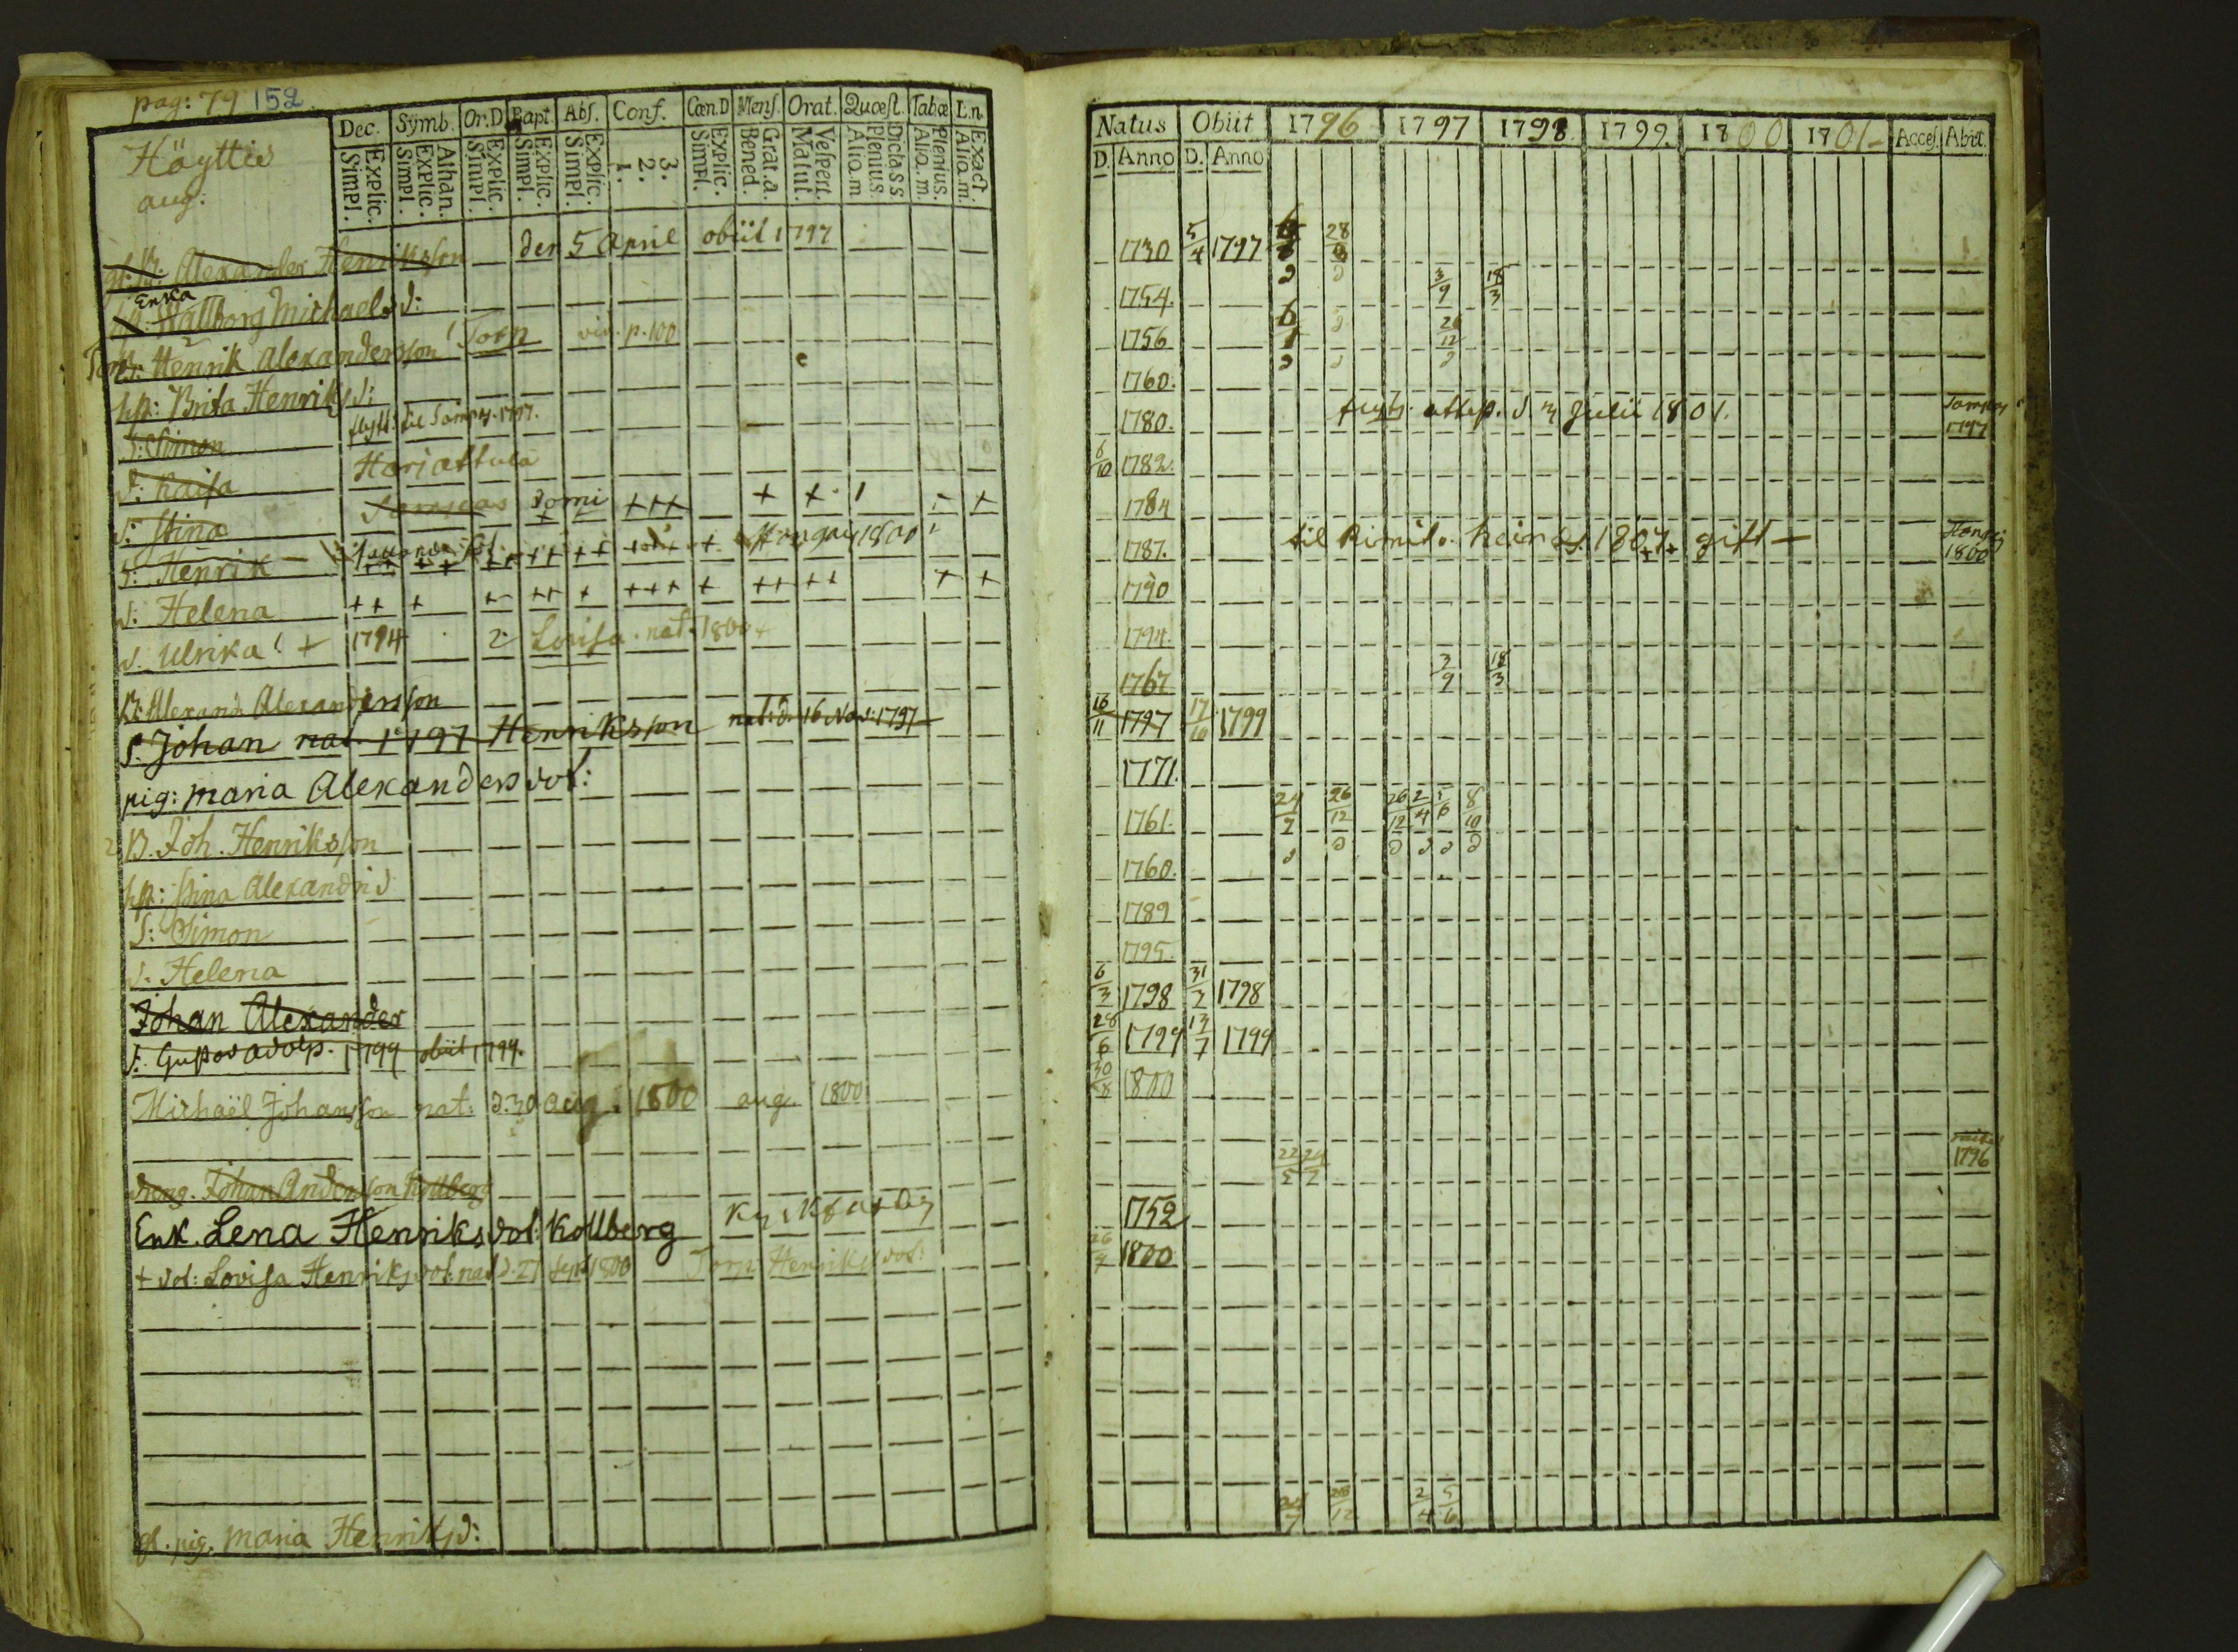 pag: 79 152
Höyttis
aug:
Dec. Symb. Or.D Bapt. Abs. Conf. Cœn.D Mens. Orat. Quœst. Tabœ L.n.
Explic. Simpl. Athan. Explic. Simpl. Explic. Simpl. Explic. Simpl. Explic. Simpl. 3. 2. 1. Explic. Simpl. Grat. a. Bened. Vespert. Matut. Dicta.s.s Plenius. Aliq.m Plenius. Aliq.m. Exact. Aliq.m.
Alexander Henriksson den 5 April obiit 1797
Enka
Wallborg Michaelsd:
Henrik Alexandersson Torp vid. p. 100
hst: Brita Henriksd:
S: Simon flytt. til 1797.
d: Kaisa Hariattula
d: Stina domi +++ + + +
S: Henrik 1800
d: Helena ++ + + ++ + +++ + ++ ++ + +
d. Ulrika + 1794 2 Lovisa. nat. 1800 +
B: Alexand. Alexandersson
S. Johan nat. 1797 Henriksson nat: d. 16 Nov: 1797
pig: maria Alexandersdot:
2 B. Joh. Henriksson
hst: Stina Alexandrid
S: Simon
d. Helena
Johan Alexander
S: Gustav Adolp. 1799 obiit 1799.
Michaël Johansson nat: d. 30 aug. 1800 aug. 1800
dreng. Johan Andersson Kollberg
Enk. Lena Henriksdot: Kollberg
+ dot: Lovisa Henriksdot. nat d. 27 Sept 1800 Torp: Henriksdot:
pig. maria Henriksd:
Natus Obiit 1796 1797 1798 1799. 1800 1801 Acces. Abit.
D. Anno D. Anno
1730 5/4 1797 28
1754. 3/9 18/3
1756 26/12
1760.
1780. attest. d. Julii 1801. 1797
6/10 1782.
1784
1787. til Rimito. 1807. gift 1800
1790
1794.
1767 3/9 18/3
16/11 1797 17/10 1799
1771.
1761. 24/7 26/12 26/12 2/4 5/6 8/10
1760.
1789
1795.
6/3 1798 31/7 1798
28/6 1799 13/7 1799
30/8 1800
22/5 24/7 1796
1752
26/9 1800
24/7 26/12 2/4 5/6